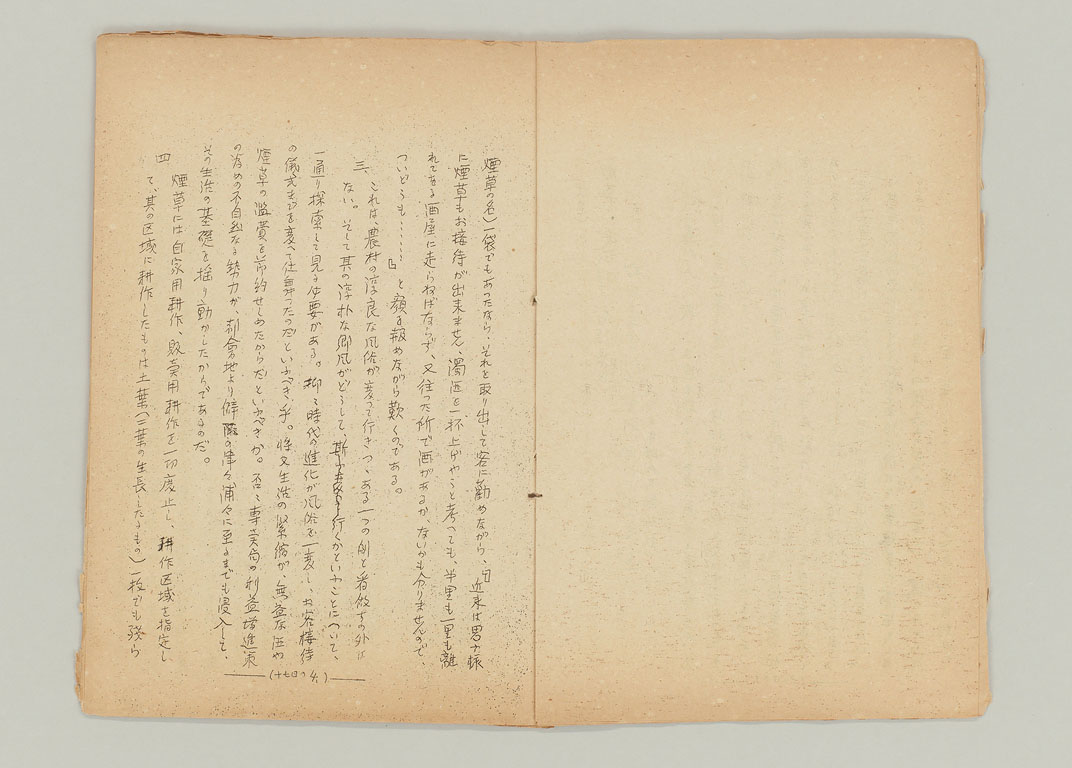 煙草の名)一袋でもあったなら、それを取り出して客に勧めながら、『近来は男子様
に煙草もお接待が出来ませせ、濁酒を一杯上げやうと考っても、半里も一里も離
れてある酒屋に走らねばならず、又往った所で酒があるか、ないかも分りませんので、
ついどうも……』と顔を赧めながら歎くのである。
三、これは、農村の淳良な風俗が変って行きつゝある一つの例と看做すの外は
ない。そして其の淳朴な郷風がどうして、斯く変り行くかといふことについて、
一通り探索して見る必要がある。抑々時代の進化が風俗を一変し、お客接待
の儀式までを変へて仕舞ったのだといふべき乎。将又生活の緊縮が、無益な酒や
煙草の濫費を節約せしめたからだといふべきか。否々専売局の利益増進策
の為めの不自然なる勢力が、都会地より僻陬の津々浦々に至るまでも浸入して、
その生活の基礎を揺り動かしたからであるのだ。
四 煙草には自家用耕作、販売用耕作を一切廃止し、耕作区域を指定し
て、其の区域に耕作したものは土葉(二葉の生長したもの)一枚でも残ら